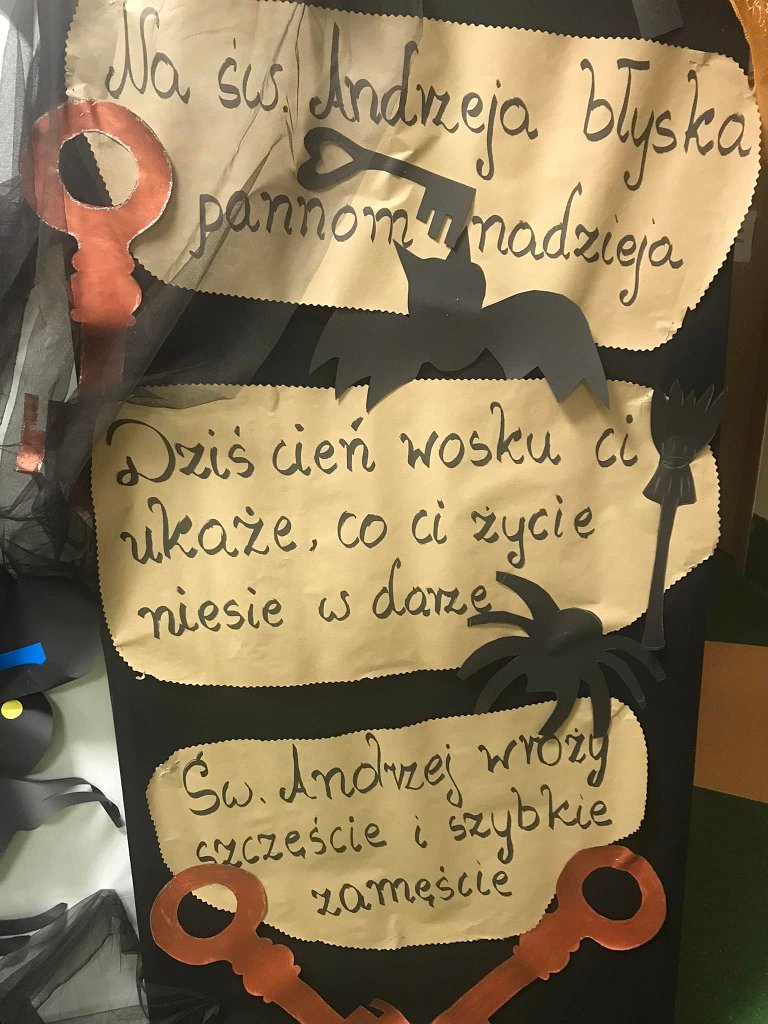 Na św. Andrzeja błyska
pannom nadzieja
Dziś cień wosku ci
ukaże, co ci życie
niesie w darze
Św. Andrzej wróży
szczęście i szybkie
zamęście